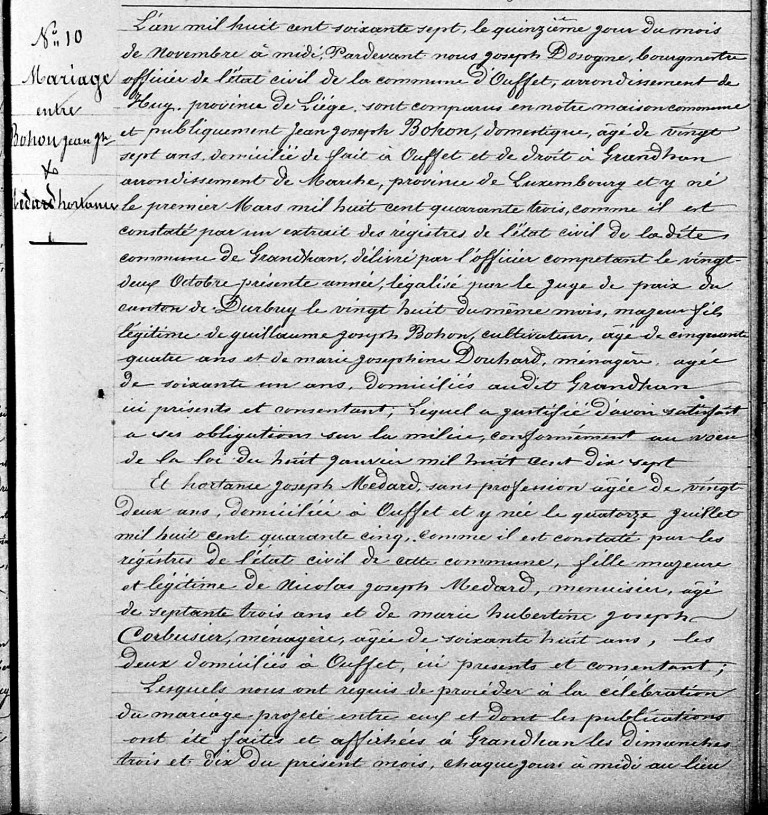 N° 10
Mariage
entre
Bohon jean jh
&
Médard hortance
L'an mil huit cent soixante sept, le quinzième jour du mois
de Novembre à midi, Pardevant nous joseph Dosogne, bourgmestre
officier de l'état civil de la commune d'Ouffet, arrondissement de
Huy, province de Liége, sont comparus en notre maison commune
et publiquement Jean Joseph Bohon, domestique, âgé de vingt
sept ans, domicilié de fait à Ouffet et de droit à Grandhan
arrondissement de Marche, province de Luxembourg et y né
le premier Mars mil huit cent quarante trois, comme il est
constaté par un extrait des registres de l'état civil de la dite
commune de Grandhan, délivré par l'officier competant le vingt
deux Octobre présente année, légalisé par le juge de paix du
canton de Durbuy le vingt huit du même mois, majeur fils
légitime de guillaume joseph Bohon, cultivateur, âgé de cinquante
quatre ans et de marie josephine Douhard, ménagère, agée
de soixante un ans, domiciliés audit Grandhan
ici présents et consentant; Lequel a justifié d'avoir satisfait
a ses obligations sur la milice, conformément au voeu
de la loi du huit janvier mil huit cent dix sept
Et hortance joseph Medard, sans profession âgée de vingt
deux ans, domiciliée à Ouffet et y née le quatorze juillet
mil huit cent quarante cinq, comme il est constaté par les
régistres de l'état civil de cette commune, fille majeure
et légitime de Nicolas joseph Medard, menuisier, âgé
de septante trois ans et de marie hubertine joseph
Corbusier, menagère, âgée de soixante huit ans, les
deux domiciliés à Ouffet, ici presents et consentant;
Lesquels nous ont requis de procéder à la célébration
du mariage projeté entre eux et dont les publications
ont été faites et affichées à Grandhan les dimanches
trois et dix du présent mois, chaque jour à midi au lieu